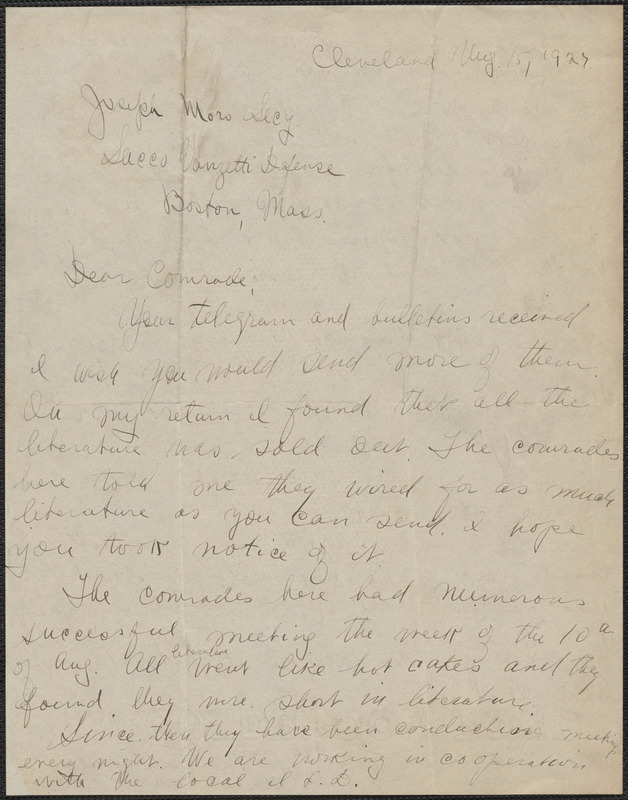 Cleveland Aug. 15, 1927.
Joseph Moro Secy.
Sacco Vanzetti Defense
Boston, Mass.
Dear Comrade;
Your telegram and bulletins received
I wish you would send more of them.
On my return I found that all the
literature was sold out. The comrades
here told me they wired for as much
literature as you can send. I hope
you took notice of it.
The comrades here had numerous
successful meeting the week of the 10th
of Aug. All literature went like hot cakes and they
found they were short in literature.
Since then they have been conducting meeting
every night. We are working in cooperation
with the local I. L. D.